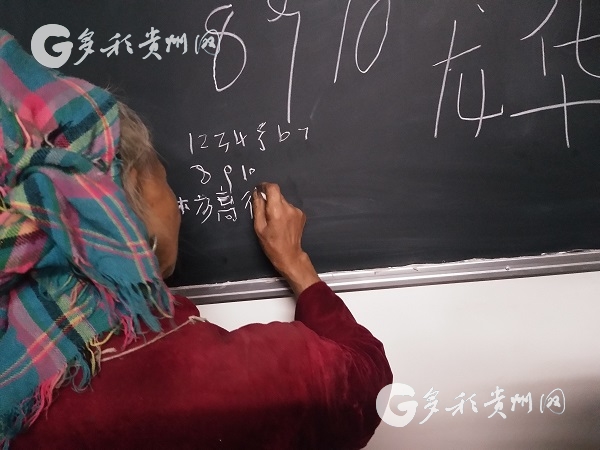 多彩贵州网
8 9 10 龙华
1 2 3 4 5 6 7
8 9 10
高
多彩贵州网